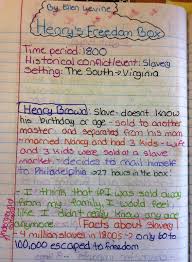 By Ellen Levine
Henry's Freedom Box
Time period: 1800
Historical conflict/event: Slavery
Setting: The South → Virginia
Henry Brown: slave - doesn't know
his birthday or age - sold to another
master and separated from his mom
- married Nancy and had 3 kids - wife
and 3 kids were sold at a slave
market - decides to mail himself
to Philadelphia → 27 hours in the box!
- I think that if I was sold away
from my family, I would feel
like I didn't really know any
anymore.
Facts about slavery
- 4 million slaves in 1800s → only 60 to
100,000 escaped to freedom